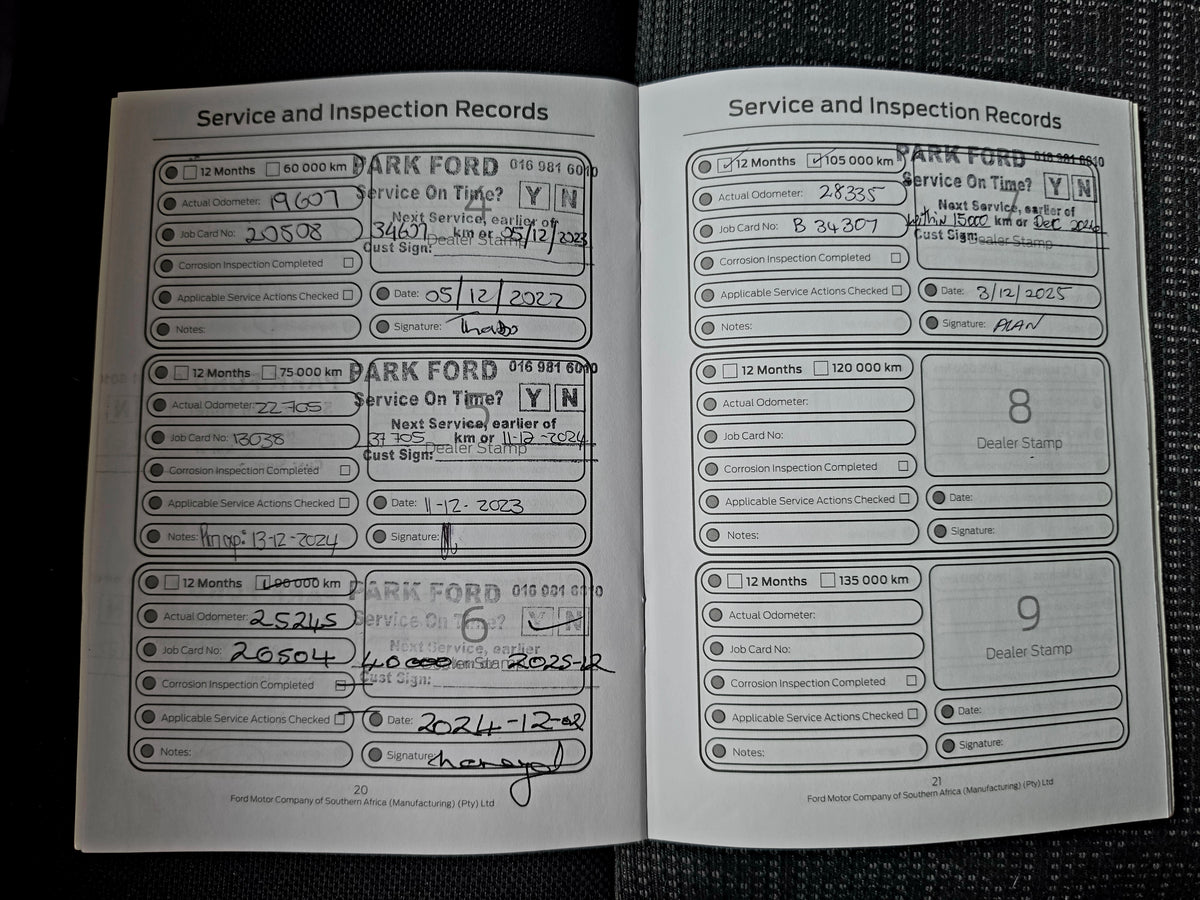 Service and Inspection Records
12 Months 60 000 km PARK FORD 016 981 6010
Actual Odometer: 19607 Service On Time? Y N
4
Next Service, earlier of
Job Card No: 20508 34607 km or 05/12/2023
Dealer Stamp
Cust Sign:
Corrosion Inspection Completed
Applicable Service Actions Checked Date: 05/12/2022
Notes: Signature: Thabo
12 Months 75 000 km PARK FORD 016 981 6010
Actual Odometer: 22705 Service On Time? Y N
5
Next Service, earlier of
Job Card No: 13038 37705 km or 11-12-2024
Dealer Stamp
Cust Sign:
Corrosion Inspection Completed
Applicable Service Actions Checked Date: 11-12-2023
Notes: 13-12-2024 Signature:
12 Months 90 000 km PARK FORD 016 981 6010
Actual Odometer: 25245 Service On Time? Y N
6
Next Service, earlier
Job Card No: 20504 40000 2025-12
Cust Sign:
Corrosion Inspection Completed
Applicable Service Actions Checked Date: 2024-12-02
Notes: Signature:
20
Ford Motor Company of Southern Africa (Manufacturing) (Pty) Ltd
Service and Inspection Records
12 Months 105 000 km PARK FORD 016 981 6010
Actual Odometer: 28335 Service On Time? Y N
7
Next Service, earlier of
Job Card No: B 34307 within 15000 km or Dec 2026
Cust Sign: Dealer Stamp
Corrosion Inspection Completed
Applicable Service Actions Checked Date: 3/12/2025
Notes: Signature: ALAN
12 Months 120 000 km
Actual Odometer: 8
Job Card No: Dealer Stamp
Corrosion Inspection Completed
Applicable Service Actions Checked Date:
Notes: Signature:
12 Months 135 000 km
Actual Odometer: 9
Job Card No: Dealer Stamp
Corrosion Inspection Completed
Applicable Service Actions Checked Date:
Notes: Signature:
21
Ford Motor Company of Southern Africa (Manufacturing) (Pty) Ltd